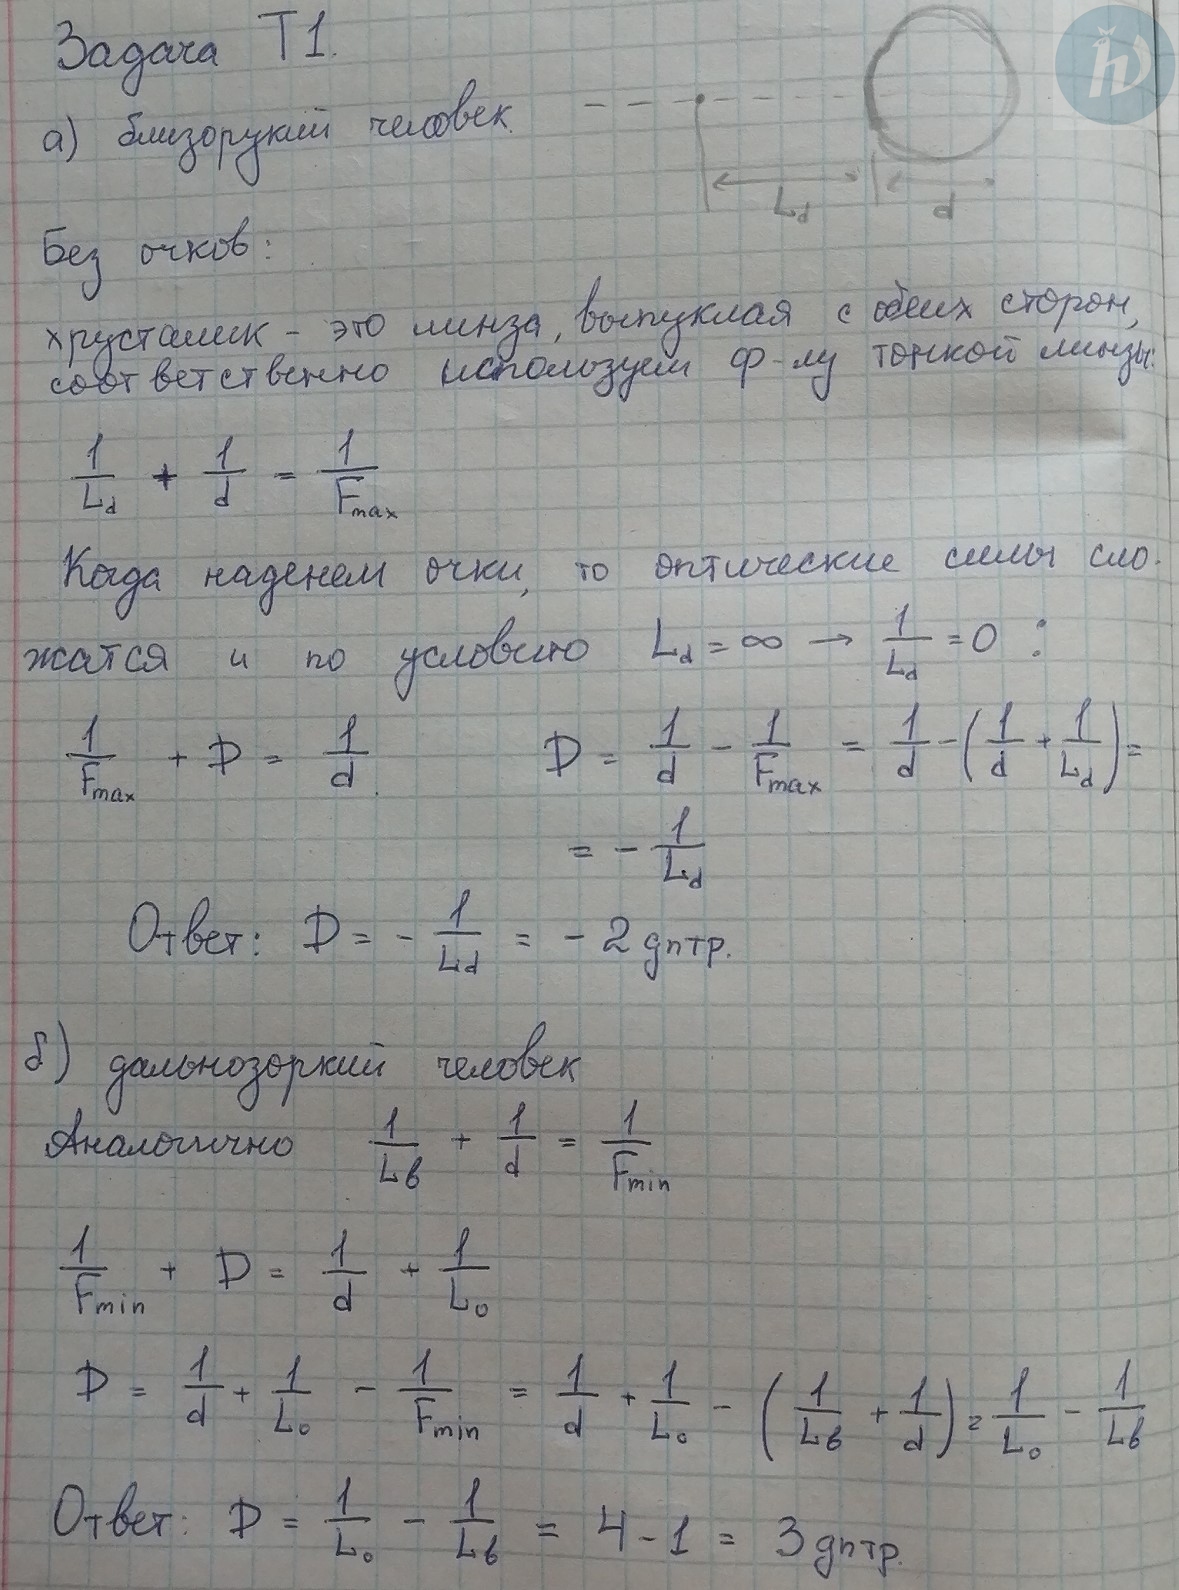 Задача Т1.
а) близорукий человек.
L_d d
Без очков:
хрусталик - это линза, выпуклая с обеих сторон,
соответственно используем ф-лу тонкой линзы:
1/L_d + 1/d = 1/F_max
Когда наденем очки, то оптические силы сло-
жатся и по условию L_d = ∞ → 1/L_d = 0 :
1/F_max + D = 1/d. D = 1/d - 1/F_max = 1/d - (1/d + 1/L_d) =
= - 1/L_d
Ответ: D = - 1/L_d = - 2 дптр.
б) дальнозоркий человек
Аналогично 1/L_в + 1/d = 1/F_min
1/F_min + D = 1/d + 1/L_0
D = 1/d + 1/L_0 - 1/F_min = 1/d + 1/L_0 - (1/L_в + 1/d) = 1/L_0 - 1/L_в
Ответ: D = 1/L_0 - 1/L_в = 4 - 1 = 3 дптр.